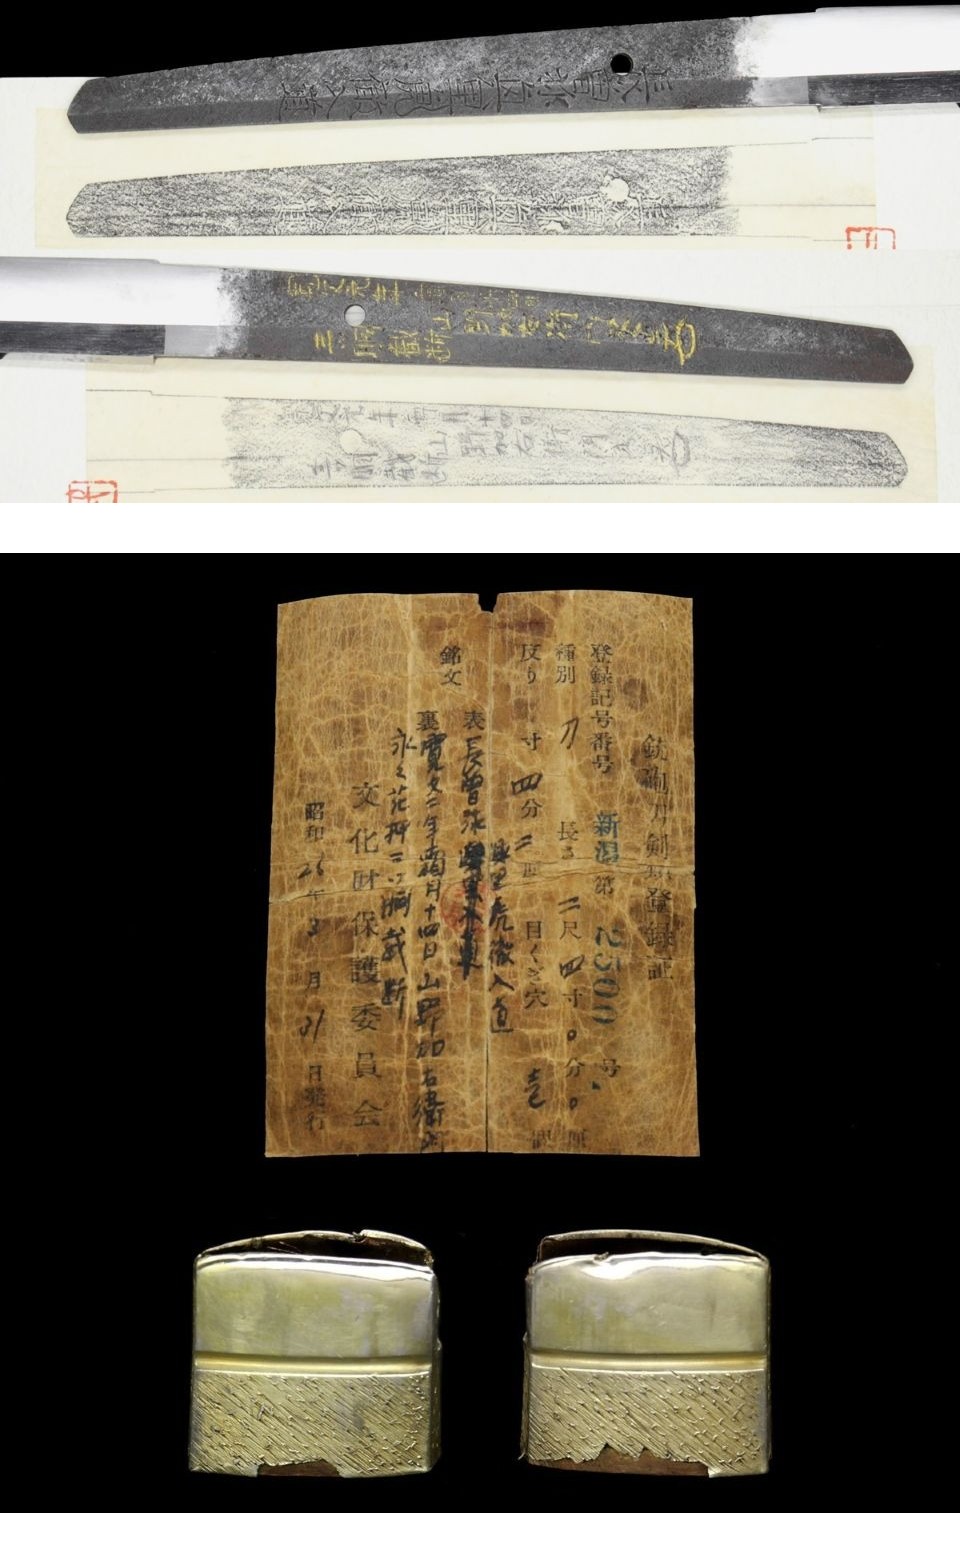 長曽祢興里虎徹入道
寛文元年霜月十四日
山野加右衛門永久
三ツ胴截断
銃砲刀剣類登録証
登録記号番号 新潟第2500号
種別 刀 長さ 二尺四寸0分0厘
反り 寸四分二厘 目くぎ穴 壱個
銘文 表 長曽祢興里虎徹入道
裏 寛文二年霜月十四日山野加右衛門
永久花押二ツ胴截断
文化財保護委員会
昭和26年3月31日発行